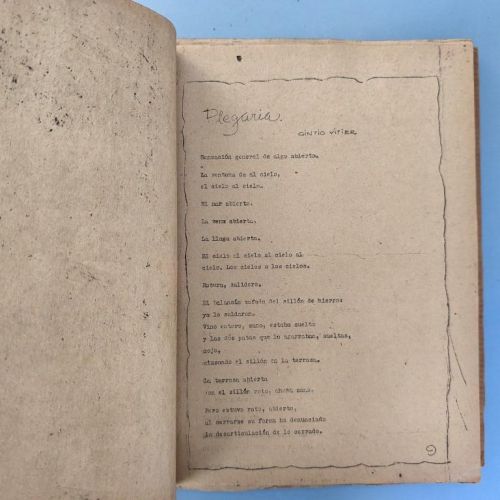 Plegaria.
CINTIO VITIER
Sensación general de algo abierto.
La ventana da al cielo,
el cielo al cielo.
El mar abierto.
La vena abierta.
La llaga abierta.
El cielo al cielo al cielo al
cielo. Los cielos a los cielos.
Rotura, salidero.
El balancín zafado del sillón de hierro:
ya lo soldaron.
Vino entero, sano, estaba suelto
y las dos patas que lo agarraban, sueltas,
cojo,
el sillón en la terraza.
La terraza abierta
con el sillón roto, ahora sano.
Pero estuvo roto, abierto,
al cerrarse su forma ha denunciado
la desarticulación de lo cerrado.
9